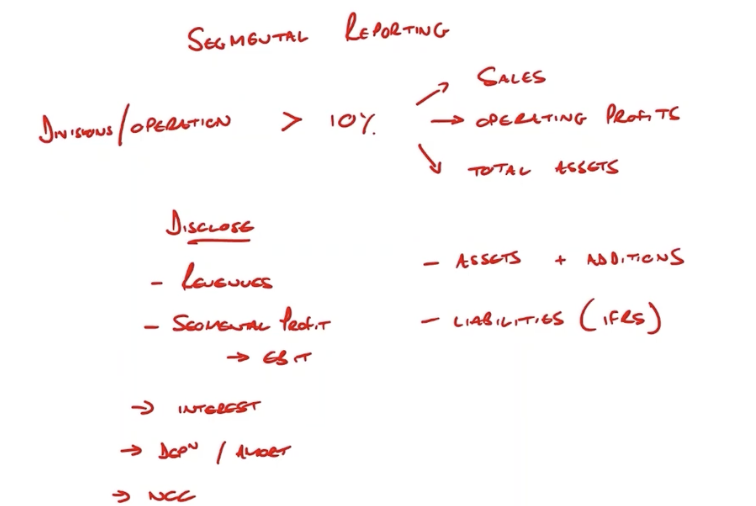 SEGMENTAL REPORTING
DIVISIONS/OPERATION > 10% → SALES
→ OPERATING PROFITS
→ TOTAL ASSETS
DISCLOSE
- REVENUES
- SEGMENTAL PROFIT
→ EBIT
→ INTEREST
→ DEPN / AMORT
→ NCC
- ASSETS + ADDITIONS
- LIABILITIES (IFRS)